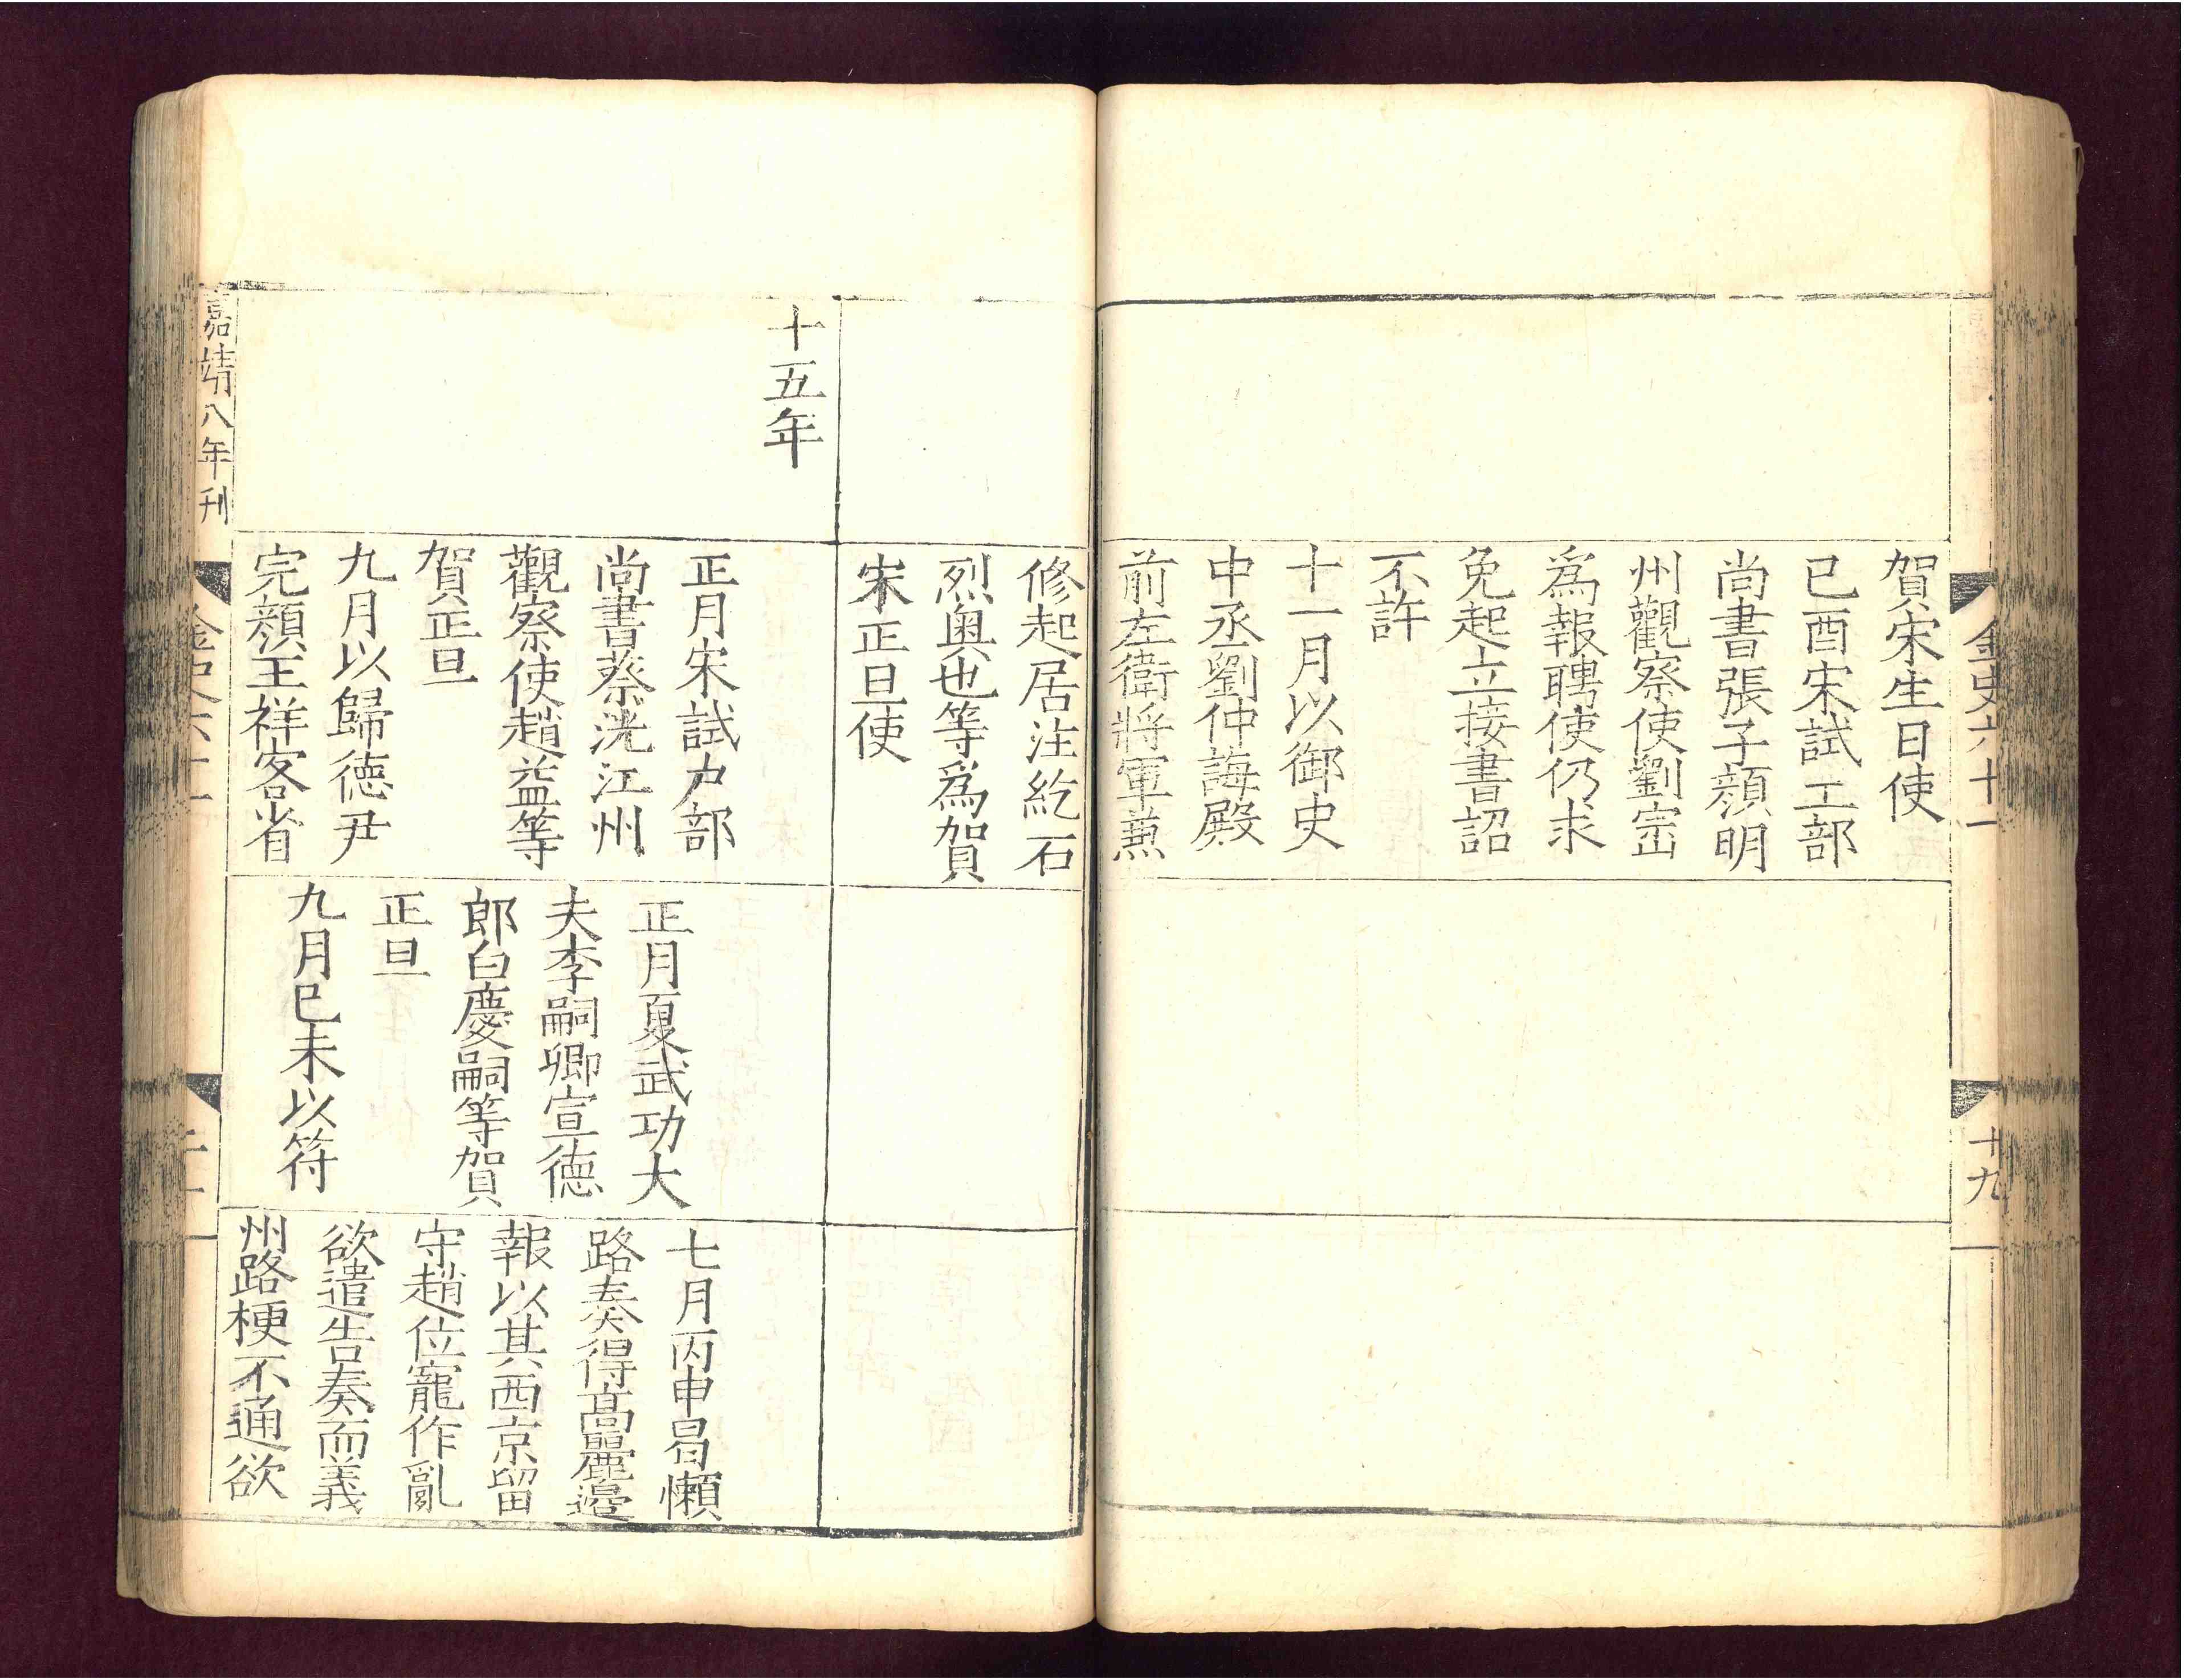 金史六十一
十九
賀宋生日使
已酉宋試工部
尚書張子顔明
州觀察使劉崈
爲報聘使仍求
免起立接書詔
不許
十一月以御史
中丞劉仲誨殿
前左衛將軍蕪
修起居注紇石
烈奥也等爲賀
宋正旦使
十五年
正月宋試户部
尚書蔡洸江州
觀察使趙益等
賀正旦
九月以歸德尹
完顔王祥客省
正月夏武功大
夫李嗣卿宣德
郎白慶嗣等賀
正旦
九月已未以符
七月丙申曷懶
路奏得高麗邊
報以其西京留
守趙位寵作亂
欲遣告奏而義
州路梗不通欲
嘉靖八年刊
金史六十一